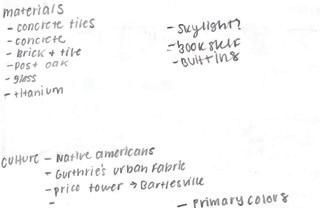 materials
- concrete tiles
- concrete
- brick + tile
- post oak
- glass
- titanium
- skylight?
- bookshelf
- built ins
culture - Native americans
- Guthrie's urban fabric
- price tower → Bartlesville
-
- Primary colors